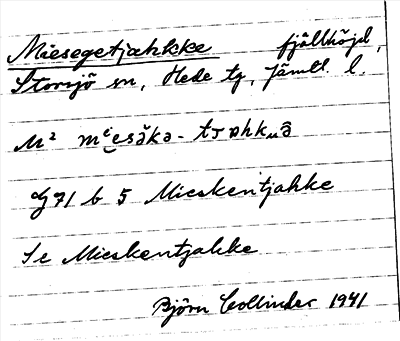 Miesegetjahkke fjällhöjd,
Storsjö sn, Hede tg, Jämtl. l.
M²
G 71 b 5 Mieskentjahke
Se Mieskentjakke
Björn Collinder 1941